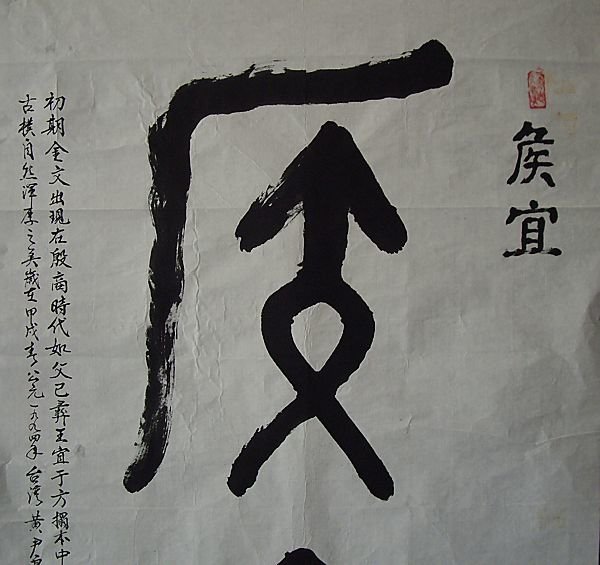 矦宜
矦
初期金文出現在殷商時代如父己彝王宜于方搨本中
古樸自然渾厚之美歲在甲戌春公元一九九四年台湾黄